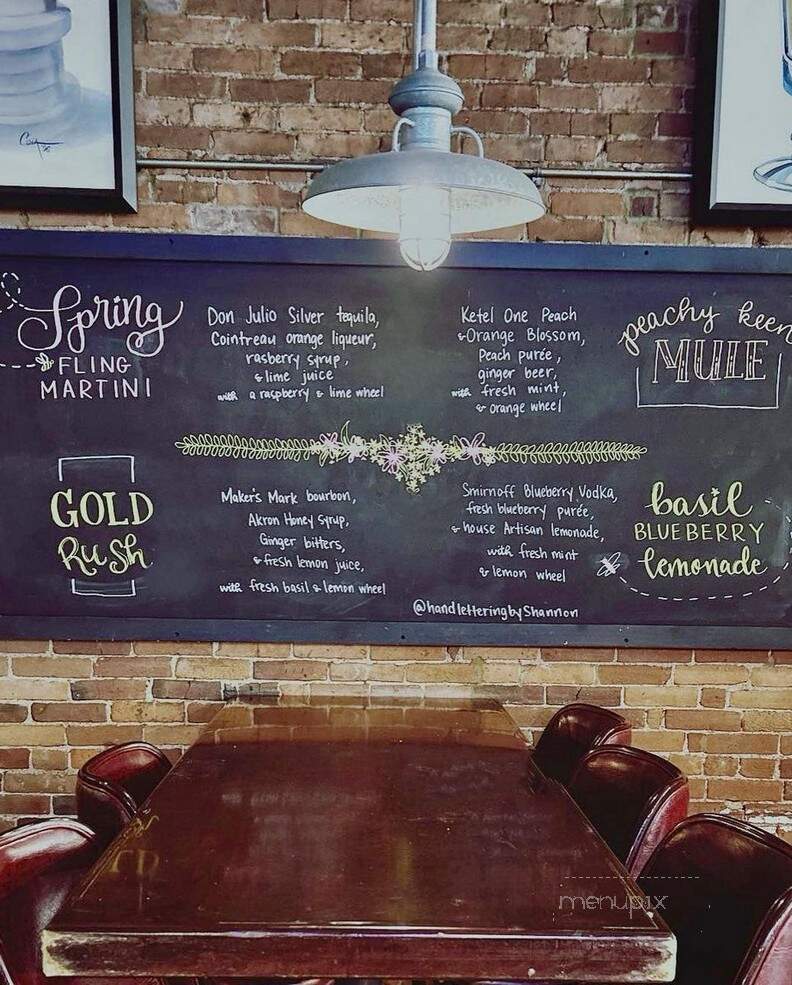 Spring
FLING
MARTINI
Don Julio Silver tequila,
Cointreau orange liqueur,
rasberry syrup,
& lime juice
with a raspberry & lime wheel
Ketel One Peach
& Orange Blossom,
Peach purée,
ginger beer,
with fresh mint,
& orange wheel
peachy keen
MULE
GOLD
Rush
Maker's Mark bourbon,
Akron Honey syrup,
Ginger bitters,
& fresh lemon juice,
with fresh basil & lemon wheel
Smirnoff Blueberry Vodka,
fresh blueberry purée,
& house Artisan lemonade,
with fresh mint
& lemon wheel
basil
BLUEBERRY
lemonade
@handletteringbyShannon
menupix